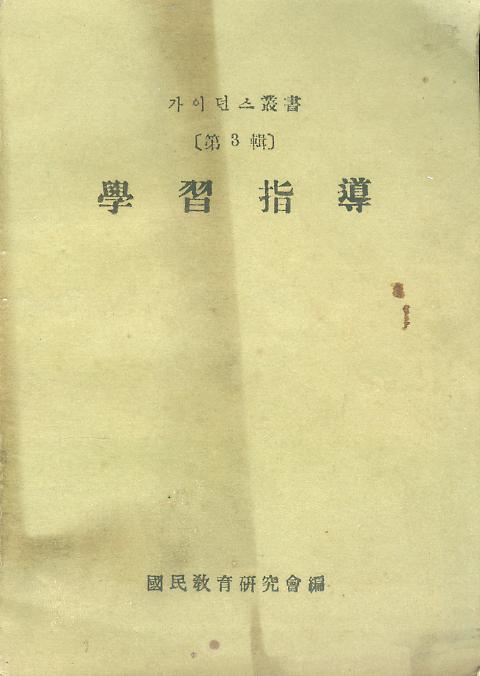 가이던스叢書
〔第3輯〕
學習指導
國民敎育硏究會編